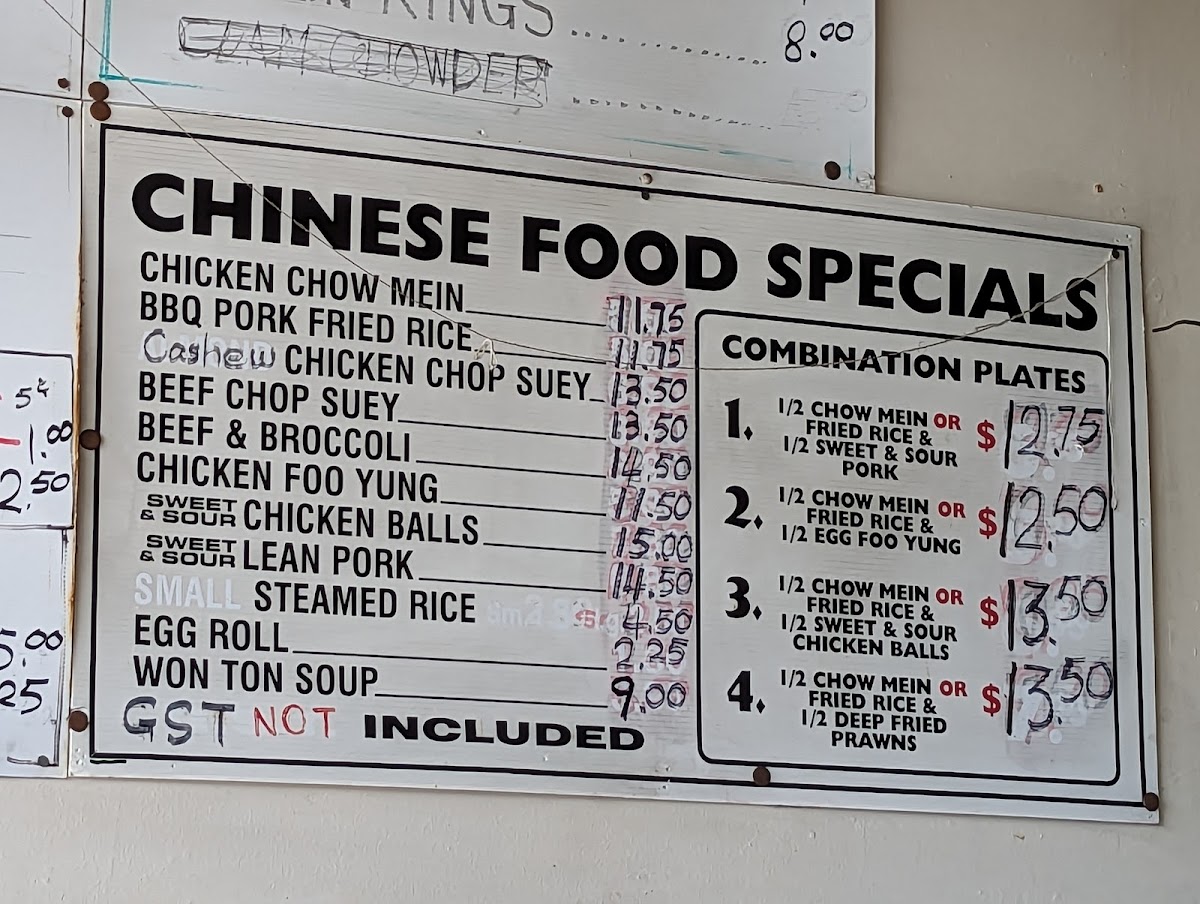 RINGS 8.00
CLAM CHOWDER
CHINESE FOOD SPECIALS
CHICKEN CHOW MEIN 11.75
BBQ PORK FRIED RICE 11.75
Cashew CHICKEN CHOP SUEY 13.50
BEEF CHOP SUEY 13.50
BEEF & BROCCOLI 14.50
CHICKEN FOO YUNG 11.50
SWEET & SOUR CHICKEN BALLS 15.00
SWEET & SOUR LEAN PORK 14.50
SMALL STEAMED RICE 4.50
EGG ROLL 2.25
WON TON SOUP 9.00
GST NOT INCLUDED
COMBINATION PLATES
1. 1/2 CHOW MEIN OR
FRIED RICE &
1/2 SWEET & SOUR
PORK
$12.75
2. 1/2 CHOW MEIN OR
FRIED RICE &
1/2 EGG FOO YUNG
$12.50
3. 1/2 CHOW MEIN OR
FRIED RICE &
1/2 SWEET & SOUR
CHICKEN BALLS
$13.50
4. 1/2 CHOW MEIN OR
FRIED RICE &
1/2 DEEP FRIED
PRAWNS
$13.50
1.00
2.50
5.00
25